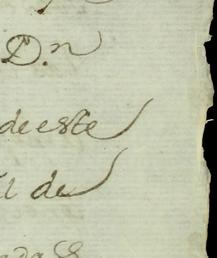 Dn
de este
l de